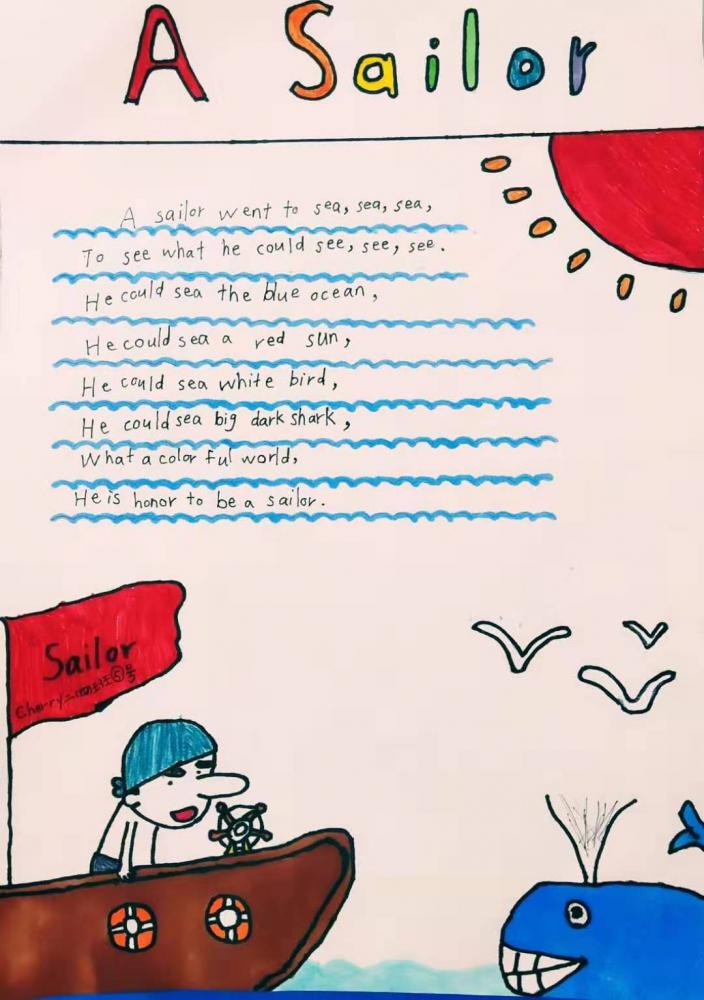 A Sailor
A sailor went to sea, sea, sea,
To see what he could see, see, see.
He could sea the blue ocean,
He could sea a red sun,
He could sea white bird,
He could sea big dark shark,
What a color ful world,
He is honor to be a sailor.
Sailor
Cherry 二 班⑤号